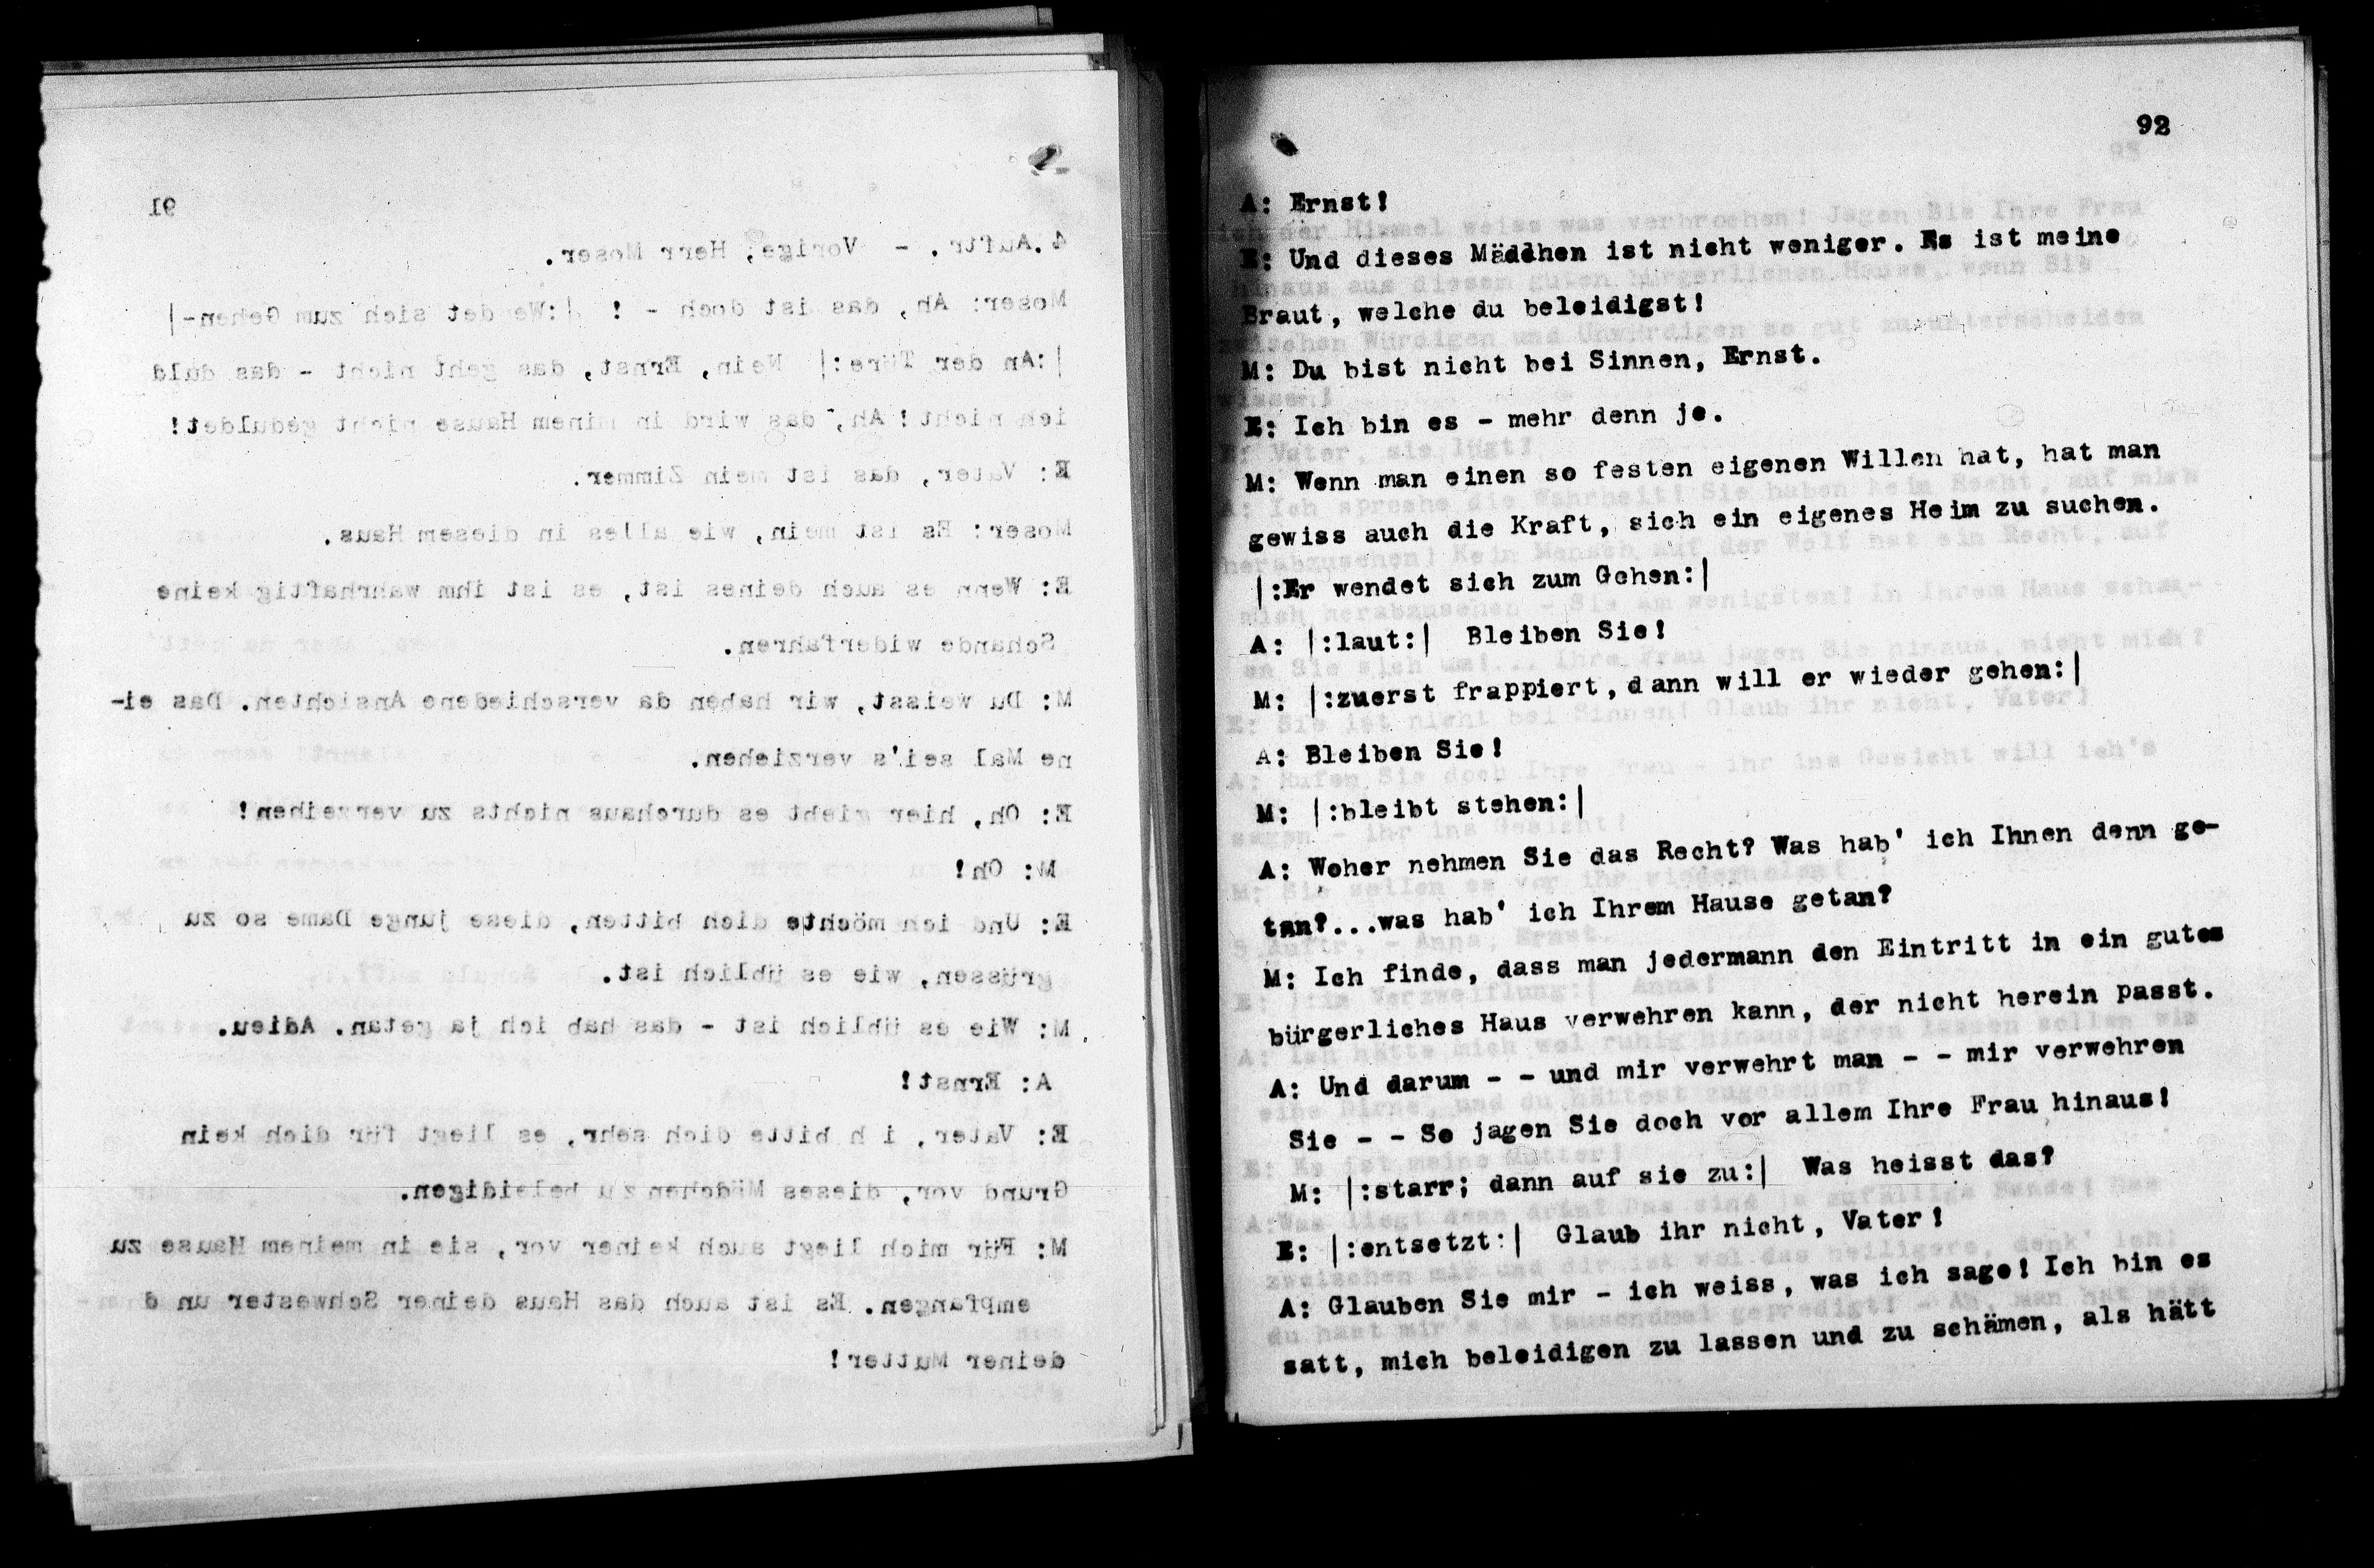 91
4.Auftr. - Vorige, Herr Moser.
Moser: Ah, das ist doch - ! |:Wendet sich zum Gehen-|
|:An der Türe:| Nein, Ernst, das geht nicht - das duld
ich nicht! Ah, das wird in meinem Hause nicht geduldet!
E: Vater, das ist mein Zimmer.
Moser: Es ist mein, wie alles in diesem Haus.
E: Wenn es auch deines ist, es ist ihm wahrhaftig keine
Schande widerfahren.
M: Du weisst, wir haben da verschiedene Ansichten. Das ei-
ne Mal sei's verziehen.
E: Oh, hier gieht es durchaus nichts zu verzeihen!
M: Oh!
E: Und ich möchte dich bitten, diese junge Dame so zu
grüssen, wie es üblich ist.
M: Wie es üblich ist - das hab ich ja getan. Adieu.
A: Ernst!
E: Vater, i h bitte dich sehr, es liegt für dich kein
Grund vor, dieses Mädchen zu beleidigen.
M: Für mich liegt auch keiner vor, sie in meinem Hause zu
empfangen. Es ist auch das Haus deiner Schwester un d
deiner Mutter!
92
A: Ernst!
E: Und dieses Mädchen ist nicht weniger. Es ist meine
Braut, welche du beleidigst!
M: Du bist nicht bei Sinnen, Ernst.
E: Ich bin es - mehr denn je.
M: Wenn man einen so festen eigenen Willen hat, hat man
gewiss auch die Kraft, sich ein eigenes Heim zu suchen.
|:Er wendet sich zum Gehen:|
A: |:laut:| Bleiben Sie!
M: |:zuerst frappiert, dann will er wieder gehen:|
A: Bleiben Sie!
M: |:bleibt stehen:|
A: Woher nehmen Sie das Recht? Was hab' ich Ihnen denn ge-
tan?...was hab' ich Ihrem Hause getan?
M: Ich finde, dass man jedermann den Eintritt in ein gutes
bürgerliches Haus verwehren kann, der nicht herein passt.
A: Und darum - - und mir verwehrt man - - mir verwehren
Sie - - So jagen Sie doch vor allem Ihre Frau hinaus!
M: |:starr; dann auf sie zu:| Was heisst das?
E: |:entsetzt:| Glaub ihr nicht, Vater!
A: Glauben Sie mir - ich weiss, was ich sage! Ich bin es
satt, mich beleidigen zu lassen und zu schämen, als hätt